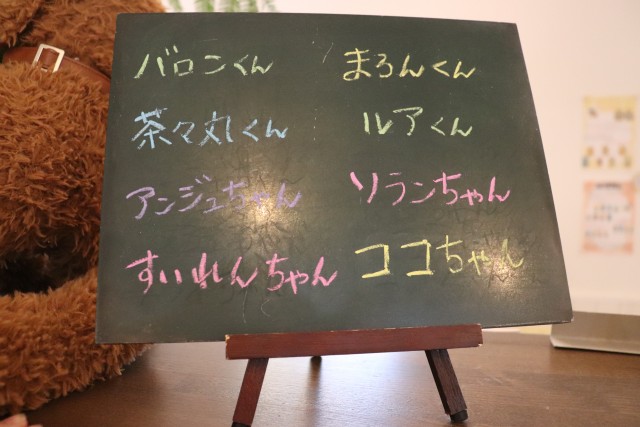 バロンくん まろんくん
茶々丸くん ルアくん
アンジュちゃん ソランちゃん
すいれんちゃん ココちゃん